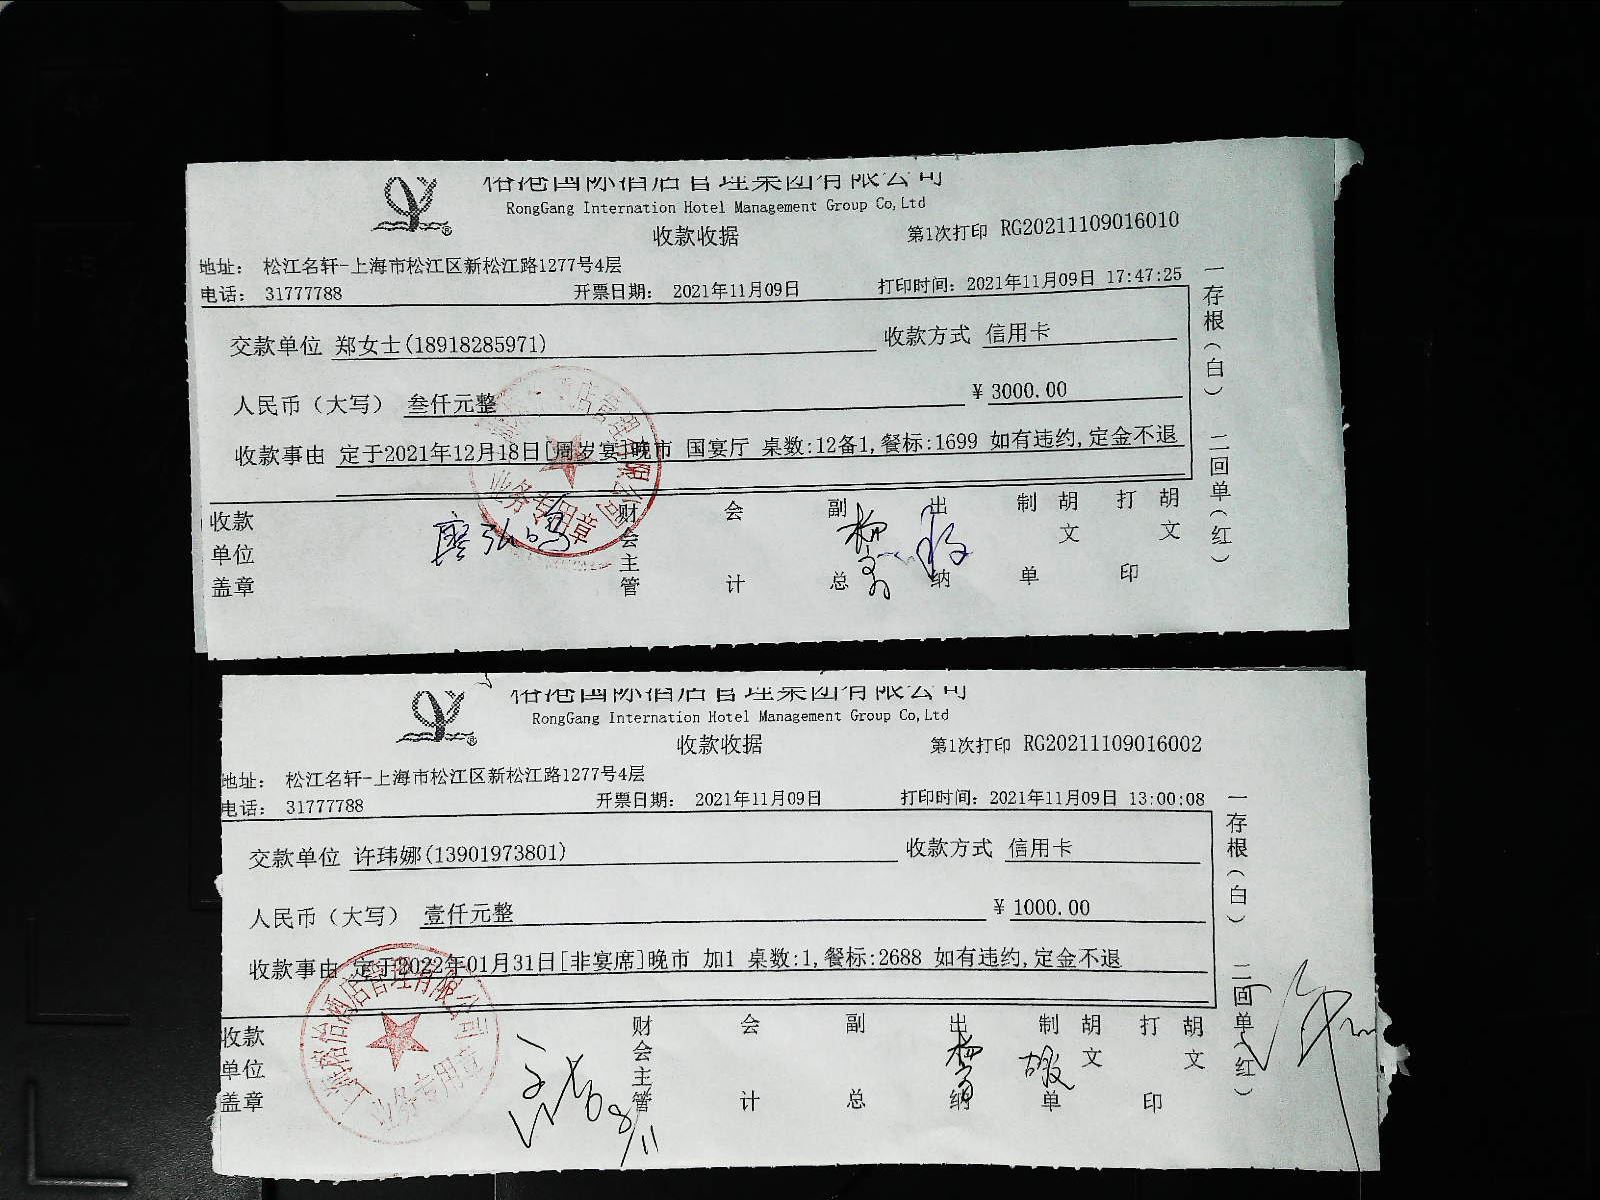 裕港国际酒店管理集团有限公司
RongGang Internation Hotel Management Group Co,Ltd
收款收据 第1次打印 RG20211109016010
地址： 松江名轩-上海市松江区新松江路1277号4层
电话： 31777788 开票日期： 2021年11月09日 打印时间：2021年11月09日 17:47:25
交款单位 郑女士(18918285971) 收款方式 信用卡
人民币（大写） 叁仟元整 ￥3000.00
收款事由 定于2021年12月18日[周岁宴]晚市 国宴厅 桌数:12备1,餐标:1699 如有违约,定金不退
收款单位盖章 财会主管 会计 副总 出纳 制单 胡文 打印 胡文
一存根（白） 二回单（红）
业务专用章
裕港国际酒店管理集团有限公司
RongGang Internation Hotel Management Group Co,Ltd
收款收据 第1次打印 RG20211109016002
地址： 松江名轩-上海市松江区新松江路1277号4层
电话： 31777788 开票日期： 2021年11月09日 打印时间：2021年11月09日 13:00:08
交款单位 许玮娜(13901973801) 收款方式 信用卡
人民币（大写） 壹仟元整 ￥1000.00
收款事由 定于2022年01月31日[非宴席]晚市 加1 桌数:1,餐标:2688 如有违约,定金不退
收款单位盖章 财会主管 会计 副总 出纳 制单 胡文 打印 胡文
一存根（白） 二回单（红）
业务专用章